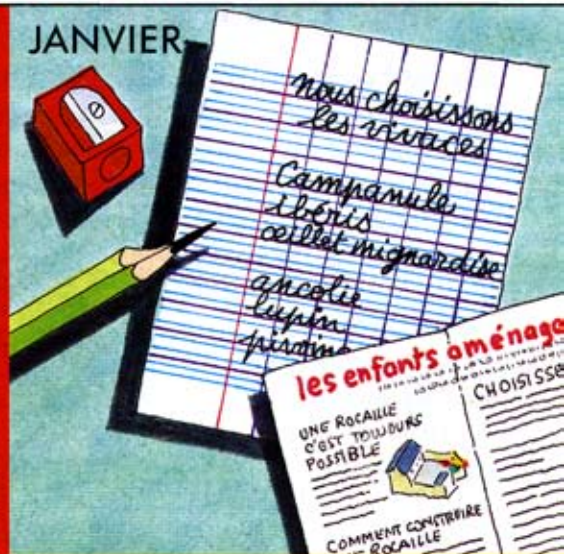 JANVIER
nous choisissons
les vivaces
Campanule
ibéris
œillet mignardise
ancolie
lupin
les enfants aménage
UNE ROCAILLE
C'EST TOUJOURS
POSSIBLE
COMMENT CONSTRUIRE
ROCAILLE
CHOISISSE